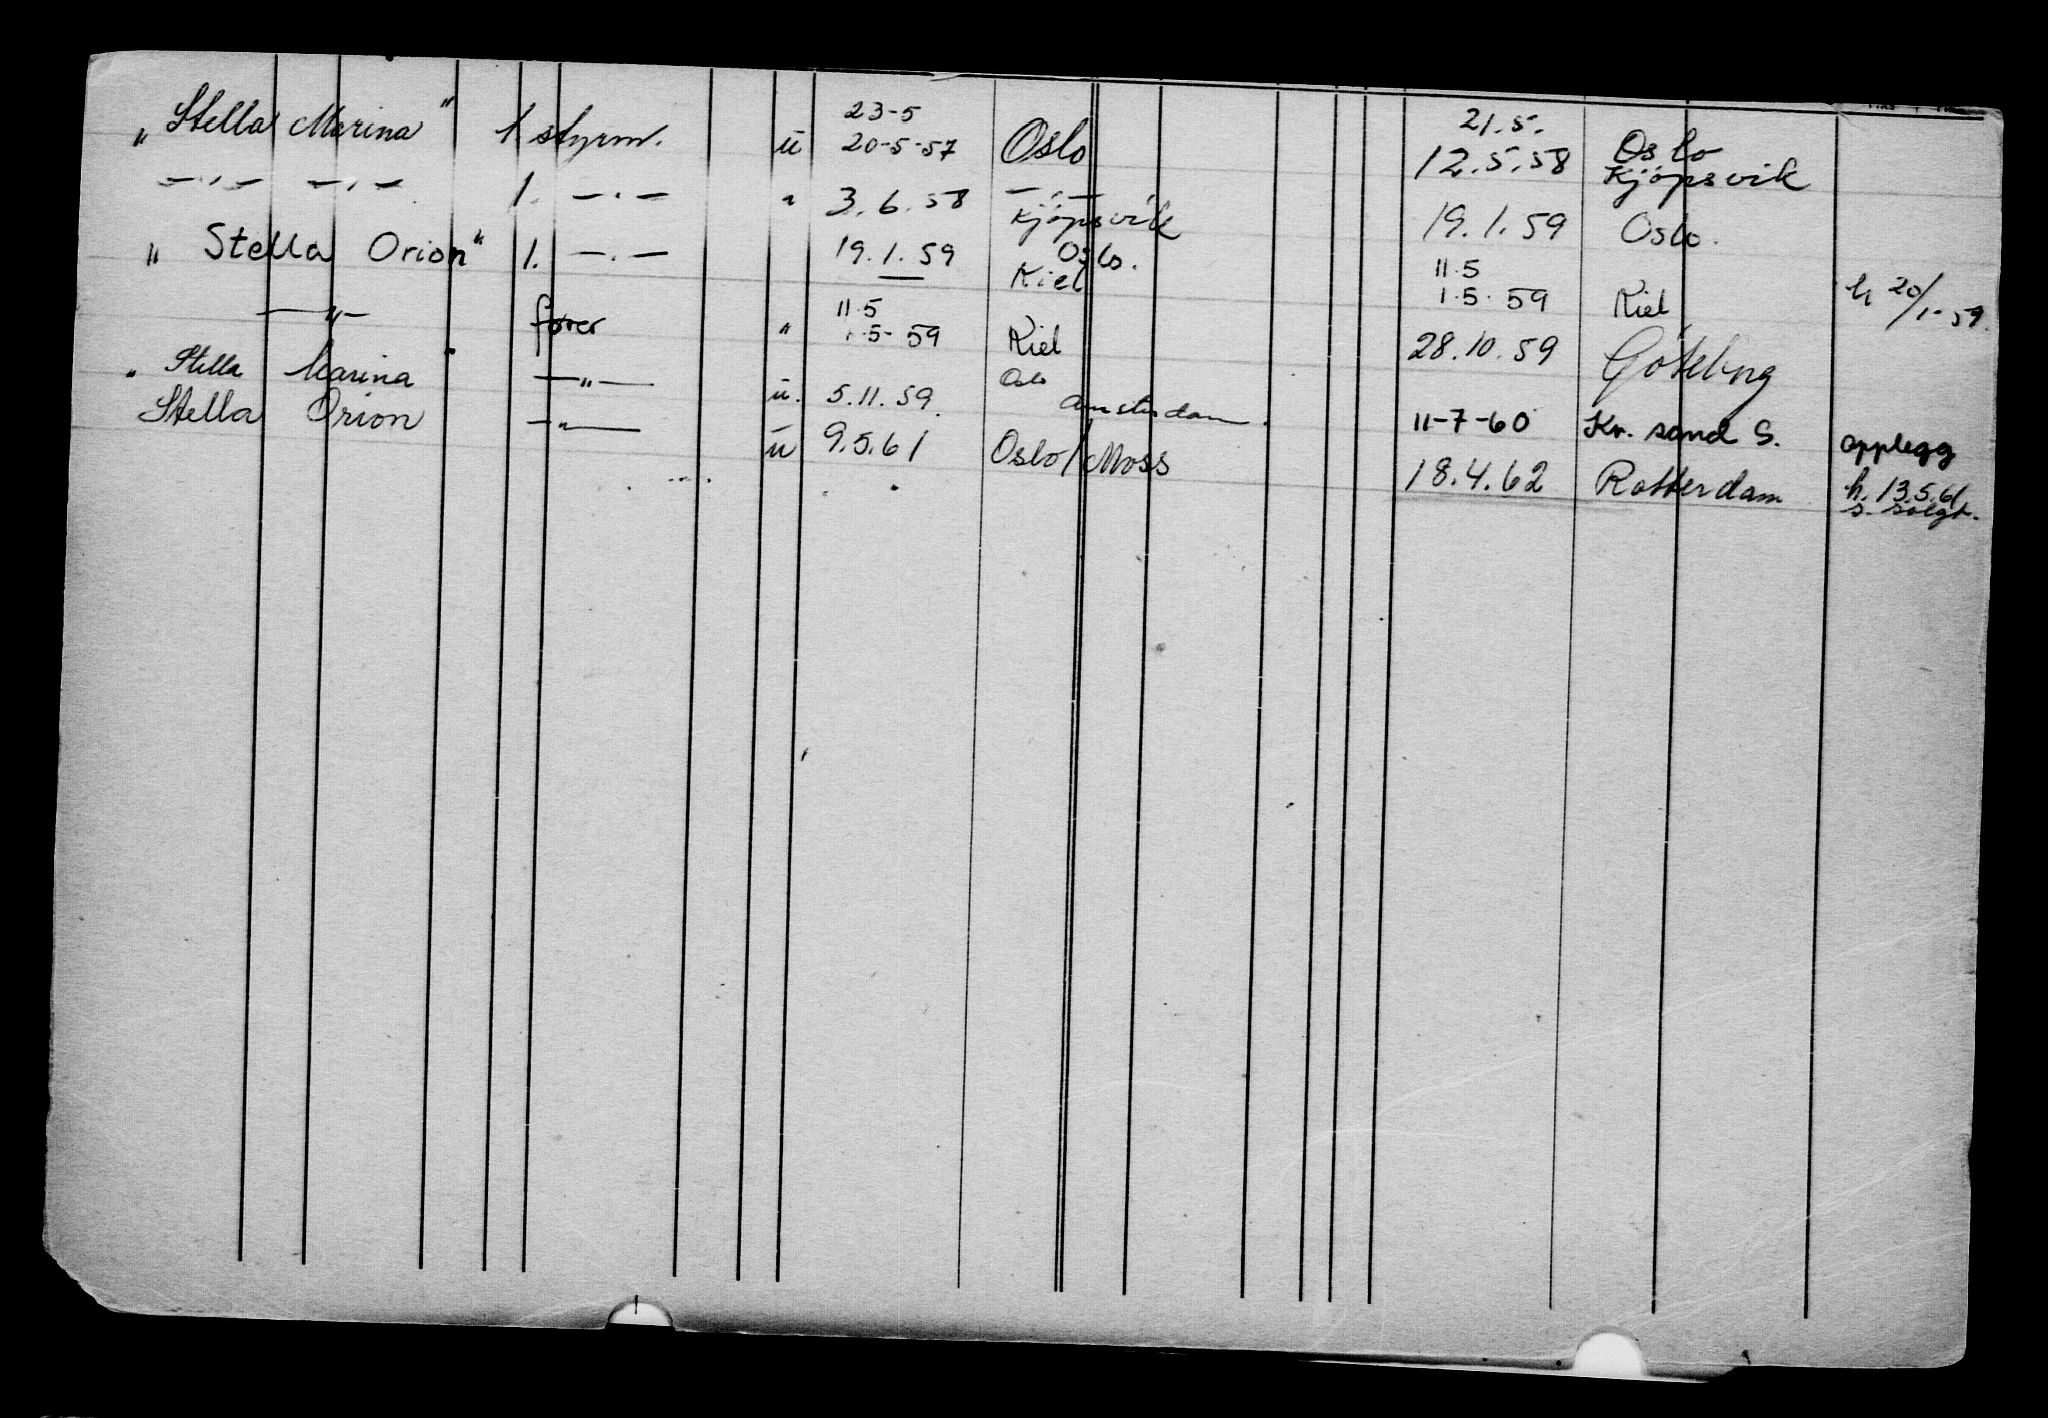 23-5 21.5.
"Stella Marina" 1 styrm. ū 20-5-57 Oslo 12.5.58 Oslo Kjöpsvik
—"— —"— 1. —.— " 3.6.58 —"— Kjöpsvik 19.1.59 Oslo.
"Stella Orion" 1. —.— 19.1.59 Oslo. Kiel 11.5 1.5.59 Kiel h 20/1-59.
—"— fører " 11.5 1.5-59 Kiel 28.10.59 Göteborg
"Stella Marina" —"— ū. 5.11.59. Oslo Amsterdam. 11-7-60 Kr. sand S. opplegg
Stella Orion —"— ū 9.5.61 Oslo/Moss 18.4.62 Rotterdam h. 13.5.61
s. solgt.